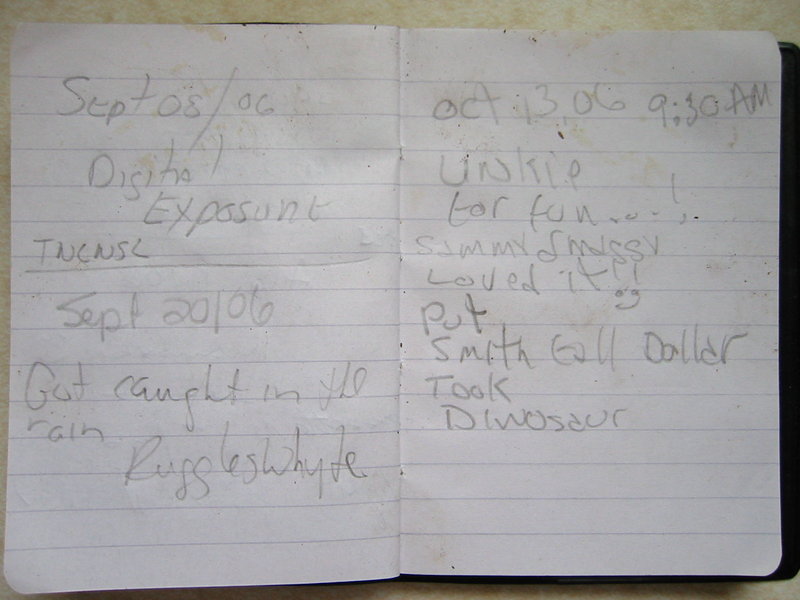 Sept 08/06
Digital
Exposure
TNLNSL
Sept 20/06
Got caught in the
rain
Ruggleswhyte
Oct 13.06 9:30 AM
UNKIP
for fun....!
Loved it!!
Put
Smith Dollar
Took
DINOSAUr